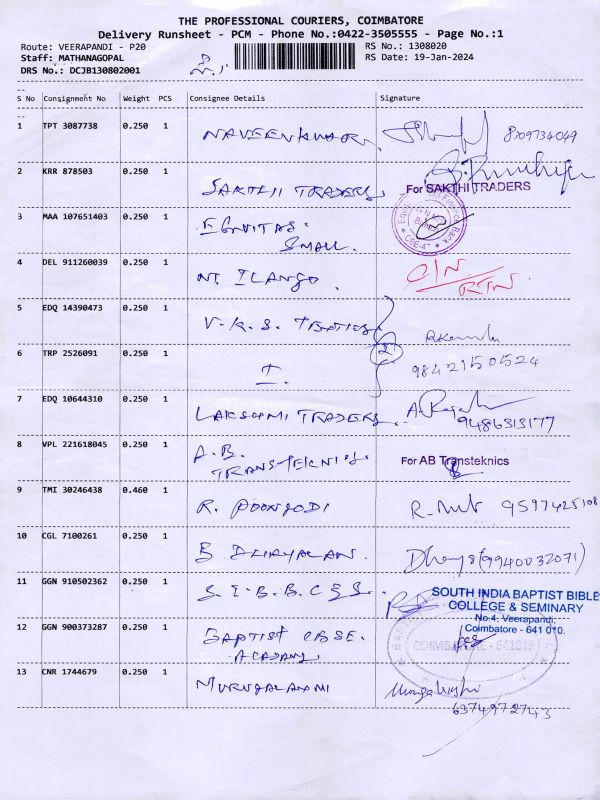 THE PROFESSIONAL COURIERS, COIMBATORE
Delivery Runsheet - PCM - Phone No.:0422-3505555 - Page No.:1
Route: VEERAPANDI - P20
RS No.: 1308020
Staff: MATHANAGOPAL
RS Date: 19-Jan-2024
DRS No.: DCJB130802001
S No Consignment No Weight PCS Consignee Details Signature
1 TPT 3087738 0.250 1 NAVEENKUMAR. 8309734049
2 KRR 878503 0.250 1 SAKTHI TRADERS For SAKTHI TRADERS
3 MAA 107651403 0.250 1 EQUITAS
SMALL.
4 DEL 911260039 0.250 1 NT. ILANGO. RTN.
5 EDQ 14390473 0.250 1 V.K.S. TEXTILES
6 TRP 2526091 0.250 1 I. 2 9842150524
7 EDQ 10644310 0.250 1 LAKSHMI TRADERS. 9486313177
8 VPL 221618045 0.250 1 A.B.
TRANSTEKNICS. For AB Transteknics
9 TMI 30246438 0.460 1 R. POONGODI 9597425108
10 CGL 7100261 0.250 1 B DHAYALAN. (9940032071)
11 GGN 910502362 0.250 1 S.I.B.B.C&S. SOUTH INDIA BAPTIST BIBLE
COLLEGE & SEMINARY
No:4, Veerapandi,
Coimbatore - 641 0*0.
12 GGN 900373287 0.250 1 BAPTIST CBSE.
ACADAMY
13 CNR 1744679 0.250 1 MURUGALAXMI
6374972743